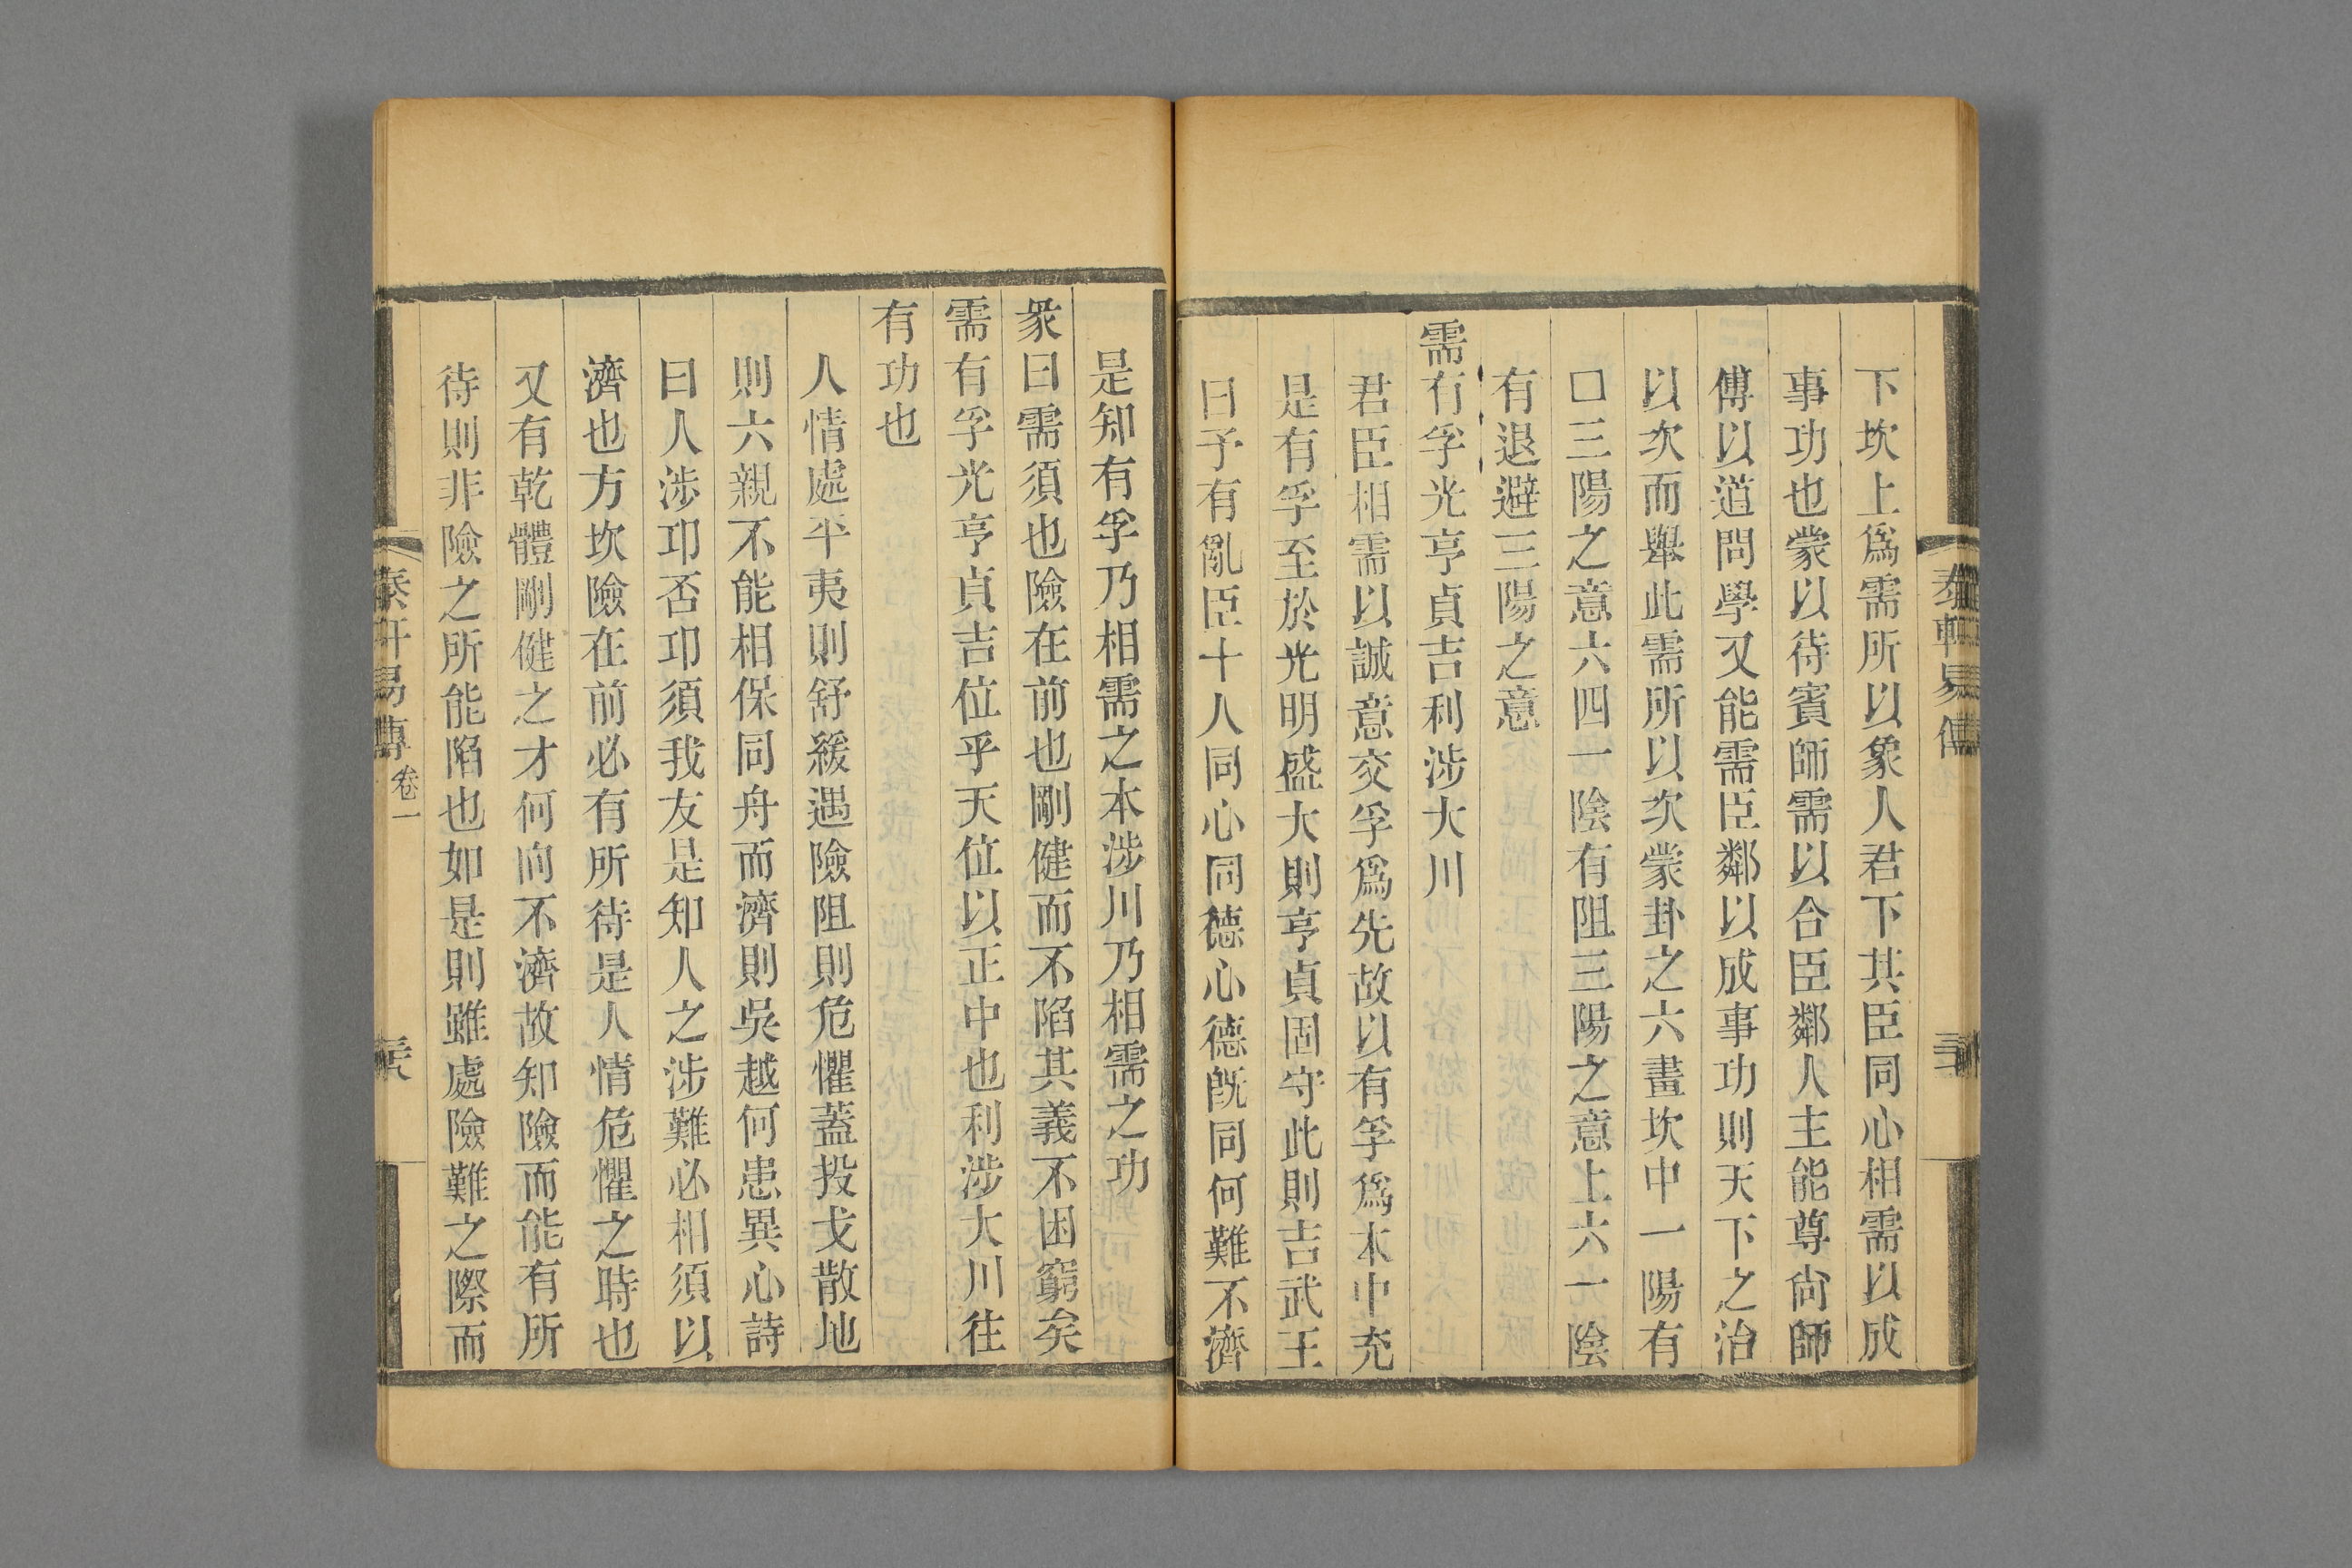 下坎上爲需所以象人君下其臣同心相需以成
事功也蒙以待賓師需以合臣鄰人主能尊尙師
傅以道問學又能需臣鄰以成事功則天下之治
以次而舉此需所以次蒙卦之六畫坎中一陽有
口三陽之意六四一陰有阻三陽之意上六一陰
有退避三陽之意
需有孚光亨貞吉利涉大川
君臣相需以誠意交孚爲先故以有孚爲本中充
是有孚至於光明盛大則亨貞固守此則吉武王
曰予有亂臣十人同心同德心德旣同何難不濟
是知有孚乃相需之本涉川乃相需之功
彖曰需須也險在前也剛健而不陷其義不困窮矣
需有孚光亨貞吉位乎天位以正中也利涉大川往
有功也
人情處平夷則舒緩遇險阻則危懼蓋投戈散地
則六親不能相保同舟而濟則吳越何患異心詩
曰人涉卬否卬須我友是知人之涉難必相須以
濟也方坎險在前必有所待是人情危懼之時也
又有乾體剛健之才何向不濟故知險而能有所
待則非險之所能陷也如是則雖處險難之際而
易傳 卷一